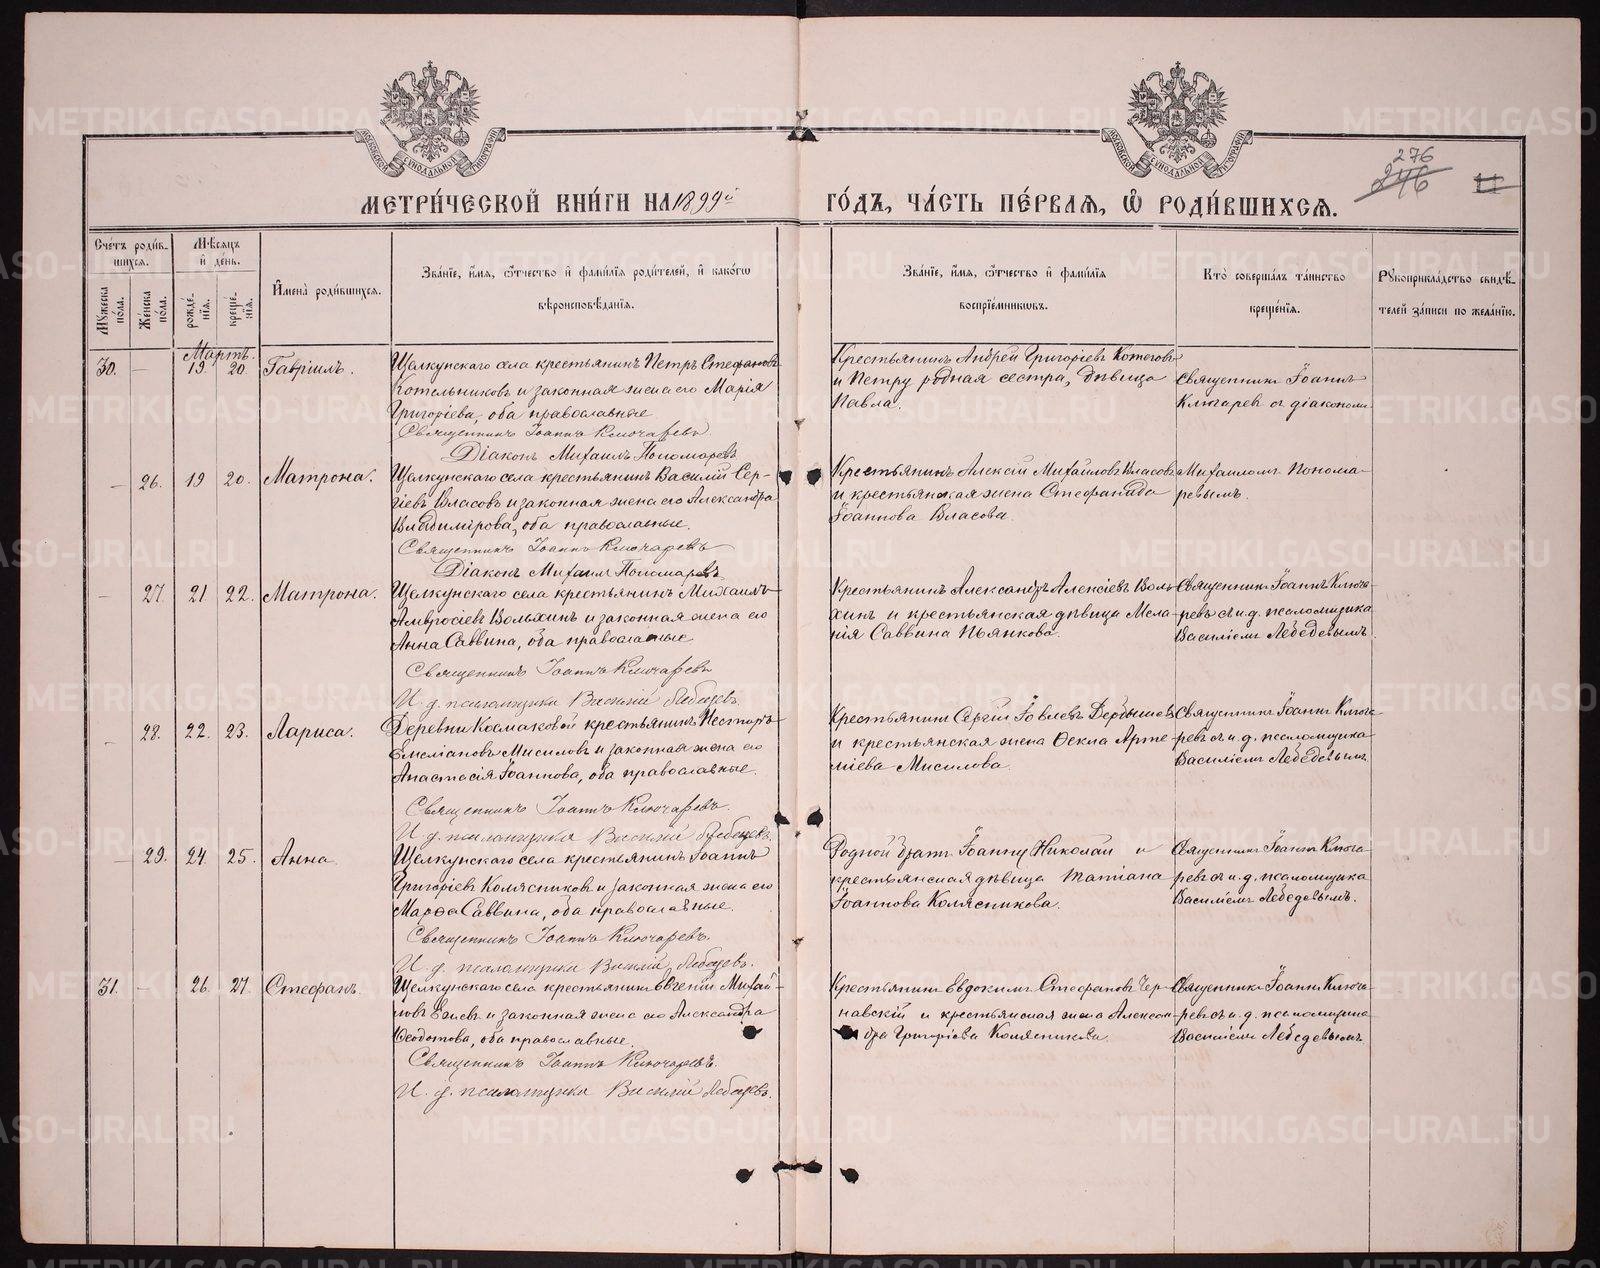 МЕТРИ́ЧЕСКОЙ КНИ́ГИ НА 1899й ГО́ДЪ, ЧА́СТЬ ПЕ́РВАЯ, Ѡ҆ РОДИ́ВШИХСЯ.
276
246
11
Сче́тъ роди́в-
шихся.
Мѣсяцъ
и҆ де́нь.
Муже́ска по́ла.
Же́нска по́ла.
рожде́-
нїя.
креще́-
нїя.
И҆мена̀ роди́вшихся.
Зва́нїе, и҆́мя, ѻ҆́тчество и҆ фами́лїя роди́телей, и҆ како́гѡ
вѣроисповѣ́данїя.
Зва́нїе, и҆́мя, ѻ҆́тчество и҆ фами́лїя
воспрїе́мниковъ.
Кто̀ соверша́лъ та́инство
креще́нїя.
Рукоприкла́дство свидѣ́-
телей за́писи по жела́нїю.
Мартъ.
30. — 19 20. Гавріилъ.
Щелкунскаго села крестьянинъ Петръ Стефановъ
Котельниковъ и законная жена его Марія
Григоріева, оба православные
Священникъ Іоаннъ Ключаревъ.
Діаконъ Михаилъ Пономаревъ
Крестьянинъ Андрей Григоріевъ
и Петру родная сестра, дѣвица
Павла.
Священникъ Іоаннъ
Ключарев съ діакономъ
— 26. 19 20. Матрона.
Щелкунскаго села крестьянинъ Василій Сер-
гіевъ Власовъ и законная жена его Александра
Владимірова, оба православные.
Священникъ Іоаннъ Ключаревъ
Діаконъ Михаилъ Пономаревъ
Крестьянинъ Алексій Михайловъ Власовъ
и крестьянская жена Стефанида
Іоаннова Власова.
Михаиломъ Понома-
ревымъ.
— 27. 21 22. Матрона.
Щелкунскаго села крестьянинъ Михаилъ
Амвросіевъ Вольхинъ и законная жена его
Анна Саввина, оба православные
Священникъ Іоаннъ Ключаревъ
И. д. псаломщика Василій Лебедевъ.
Крестьянинъ Александръ Алексіевъ Воль-
хинъ и крестьянская дѣвица Мела-
нія Саввина Пьянкова.
Священникъ Іоаннъ Ключа-
ревъ съ и. д. псаломщика
Василіемъ Лебедевымъ.
— 28. 22. 23. Лариса.
Деревни Космаковой крестьянинъ Несторъ
Емеліановъ Мисиловъ и законная жена его
Анастасія Іоаннова, оба православные.
Священникъ Іоаннъ Ключаревъ.
И. д. псаломщика Василій Лебедевъ.
Крестьянинъ Сергій Іовлевъ
и крестьянская жена Ѳекла Арте-
міева Мисилова.
Священникъ Іоаннъ Ключа-
ревъ съ и. д. псаломщика
Василіемъ Лебедевымъ
— 29. 24. 25. Анна
Щелкунскаго села крестьянинъ Іоаннъ
Григоріевъ Колясниковъ и законная жена его
Марѳа Саввина, оба православные.
Священникъ Іоаннъ Ключаревъ.
И. д. псаломщика Василій Лебедевъ.
Родной братъ Іоанну Николай и
крестьянская дѣвица Татіана
Іоаннова Колясникова.
Священникъ Іоаннъ Ключа-
ревъ съ и. д. псаломщика
Василіемъ Лебедевымъ.
31. — 26. 27. Стефанъ.
Щелкунскаго села крестьянинъ Евгеній Михай-
ловъ и законная жена его Александра
Ѳеодотова, оба православные.
Священникъ Іоаннъ Ключаревъ.
И. д. псаломщика Василій Лебедевъ.
Крестьянинъ Евдокимъ Стефановъ Чер-
навскій и крестьянская жена Алексан-
дра Григоріева Колясникова.
Священникъ Іоаннъ Ключа-
ревъ съ и. д. псаломщика
Василіемъ Лебедевымъ
METRIKI.GASO-URAL.RU